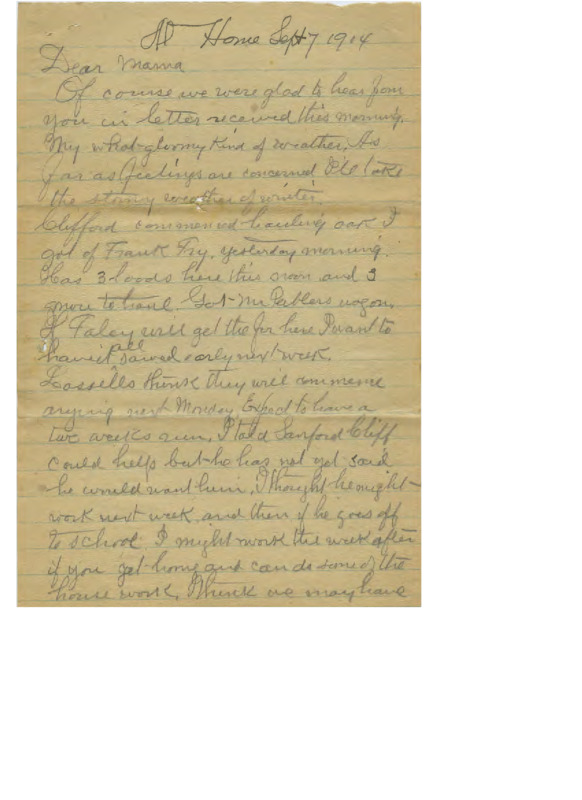 At Home Sept 7 1914
Dear Mama
Of course we were glad to hear from
you in letter received this morning.
My what gloomy kind of weather. As
far as feelings are concerned I'll take
the stormy weather of winter.
Clifford commenced hauling oak I
got of Frank Fry, yesterday morning.
Has 3 loads here this noon and 3
more to haul. Got Mr Pablers wagon.
If Faley will get the here I want to
have it all sawed early next week.
think they will commence
next Monday. Expect to have a
two weeks run. I told Sanford Cliff
could help but he has not yet said
he would want him. I thought he might
work next week, and then if he goes off
to school I might work the week after
if you get home and can do some of the
house work. I think we may have